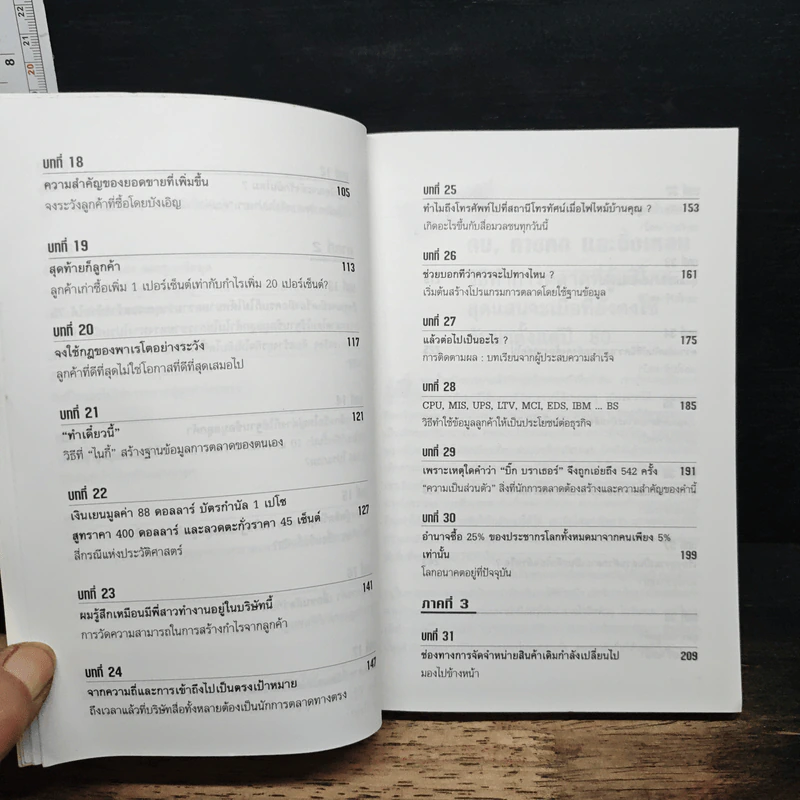 8
20
21
22
บทที่ 18
ความสำคัญของยอดขายที่เพิ่มขึ้น
105
จงระวังลูกค้าที่ซื้อโดยบังเอิญ
บทที่ 19
สุดท้ายก็ลูกค้า
113
ลูกค้าเก่าซื้อเพิ่ม 1 เปอร์เซ็นต์เท่ากับกำไรเพิ่ม 20 เปอร์เซ็นต์?
บทที่ 20
จงใช้กฎของพาเรโตอย่างระวัง
117
ลูกค้าที่ดีที่สุดไม่ใช่โอกาสที่ดีที่สุดเสมอไป
บทที่ 21
"ทำเดี๋ยวนี้"
121
วิธีที่ "ไนกี้" สร้างฐานข้อมูลการตลาดของตนเอง
บทที่ 22
เงินเยนมูลค่า 88 ดอลลาร์ บัตรกำนัล 1 เปโซ
สูทราคา 400 ดอลลาร์ และลวดตะกั่วราคา 45 เซ็นต์
127
สี่กรณีแห่งประวัติศาสตร์
บทที่ 23
ผมรู้สึกเหมือนมีพี่สาวทำงานอยู่ในบริษัทนี้
141
การวัดความสามารถในการสร้างกำไรจากลูกค้า
บทที่ 24
จากความถี่และการเข้าถึงไปเป็นตรงเป้าหมาย
147
ถึงเวลาแล้วที่บริษัทสื่อทั้งหลายต้องเป็นนักการตลาดทางตรง
บทที่ 25
ทำไมถึงโทรศัพท์ไปที่สถานีโทรทัศน์เมื่อไฟไหม้บ้านคุณ ?
153
เกิดอะไรขึ้นกับสื่อมวลชนทุกวันนี้
บทที่ 26
ช่วยบอกทีว่าควรจะไปทางไหน ?
161
เริ่มต้นสร้างโปรแกรมการตลาดโดยใช้ฐานข้อมูล
บทที่ 27
แล้วต่อไปเป็นอะไร ?
175
การติดตามผล : บทเรียนจากผู้ประสบความสำเร็จ
บทที่ 28
CPU, MIS, UPS, LTV, MCI, EDS, IBM ... BS
185
วิธีทำใช้ข้อมูลลูกค้าให้เป็นประโยชน์ต่อธุรกิจ
บทที่ 29
เพราะเหตุใดคำว่า "บิ๊ก บราเธอร์" จึงถูกเอ่ยถึง 542 ครั้ง
191
"ความเป็นส่วนตัว" สิ่งที่นักการตลาดต้องสร้างและความสำคัญของคำนี้
บทที่ 30
อำนาจซื้อ 25% ของประชากรโลกทั้งหมดมาจากคนเพียง 5%
เท่านั้น
199
โลกอนาคตอยู่ที่ปัจจุบัน
ภาคที่ 3
บทที่ 31
ช่องทางการจัดจำหน่ายสินค้าเดิมกำลังเปลี่ยนไป
209
มองไปข้างหน้า